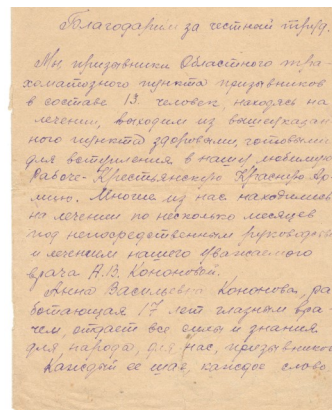 Благодарим за честный труд.
Мы призывники Областного тра-
хоматозного пункта призывников
в составе 13 человек, находясь на
лечении, выходим из вышеуказан
ного пункта здоровыми, готовыми
для вступления в нашу любимую
Рабоче-Крестьянскую Красную Ар
мию. Многие из нас находились
на лечении по несколько месяцев
под непосредственным руководством
и лечением нашего уважаемого
врача А.В. Кононовой.
Анна Васильевна Кононова, ра
ботающая 17 лет глазным вра-
чем, отдает все силы и знания
для народа, для нас, призывников
Каждый ее шаг, каждое слово